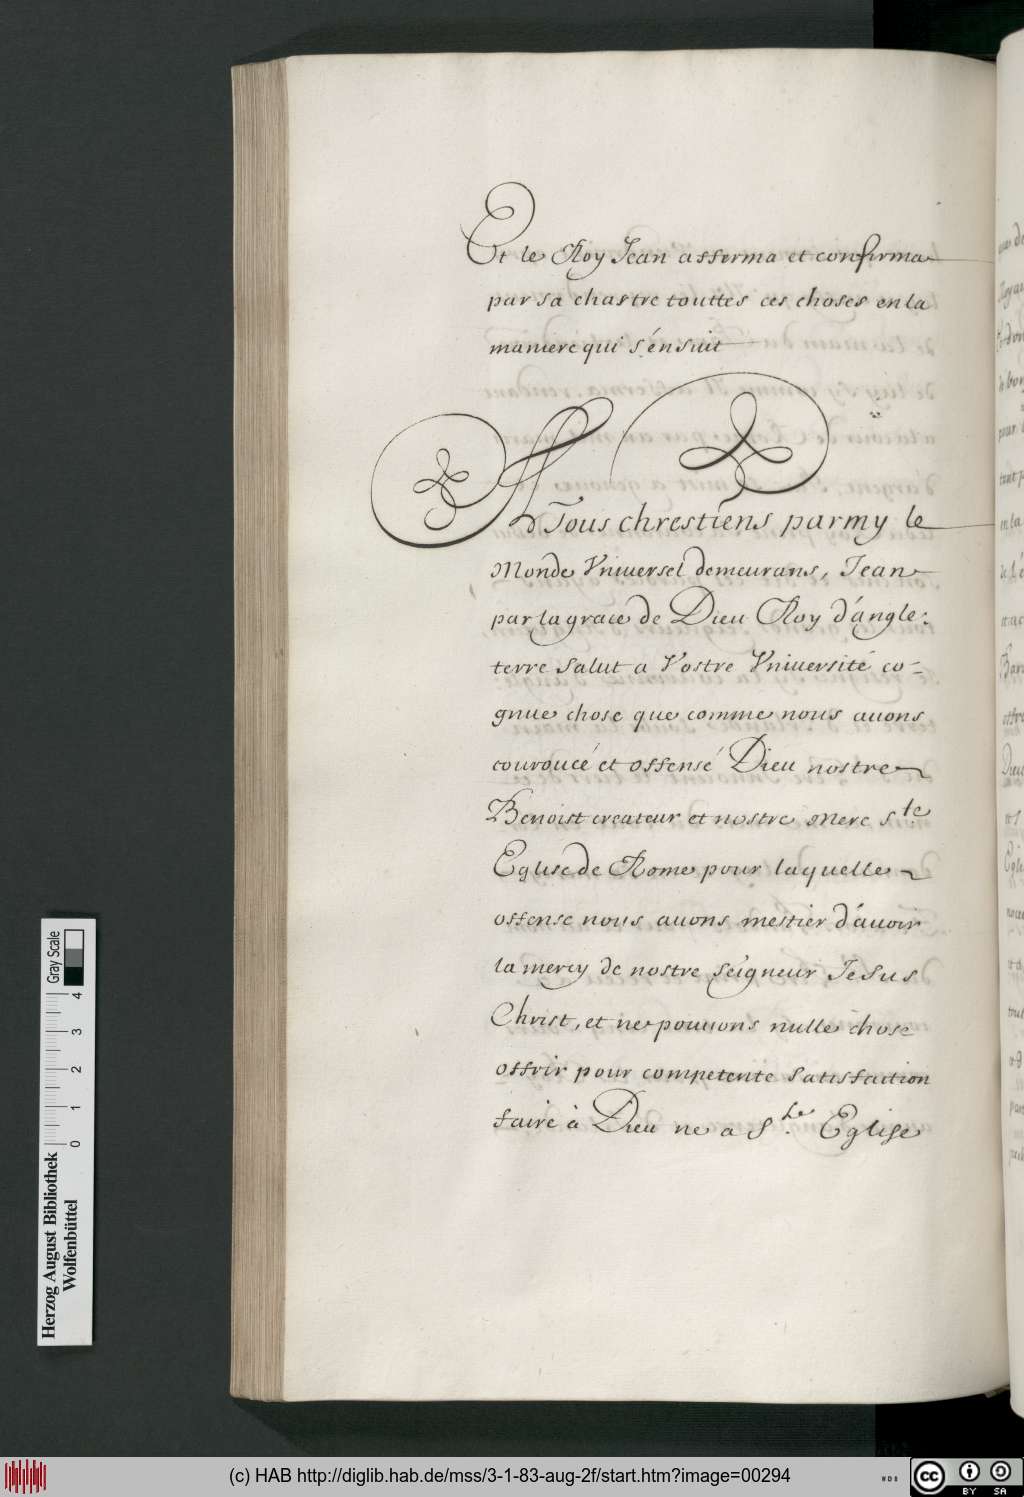 Et le Roy Jean afferma et confirma
par sa chastre touttes ces choses en la
maniere qui s'ensuit
A Tous chrestiens parmy le
Monde Vniuersel demeurans, Jean
par la grace de Dieu Roy d'angle:
terre salut a Vostre Vniuersité co-
gnue chose que comme nous auons
couroucé et offensé Dieu nostre
Benoist createur et nostre Mere s.te
Eglise de Rome pour laquelle
offense nous auons mestier d'auoir
la mercy de nostre seigneur Jesus
Christ, et ne pouuons nulle chose
offrir pour competente satisfaction
faire à Dieu ne a S.te Eglise
Herzog August Bibliothek
Wolfenbüttel
0 1 2 3 4
Gray Scale
(c) HAB http://diglib.hab.de/mss/3-1-83-aug-2f/start.htm?image=00294
WDB
cc BY SA